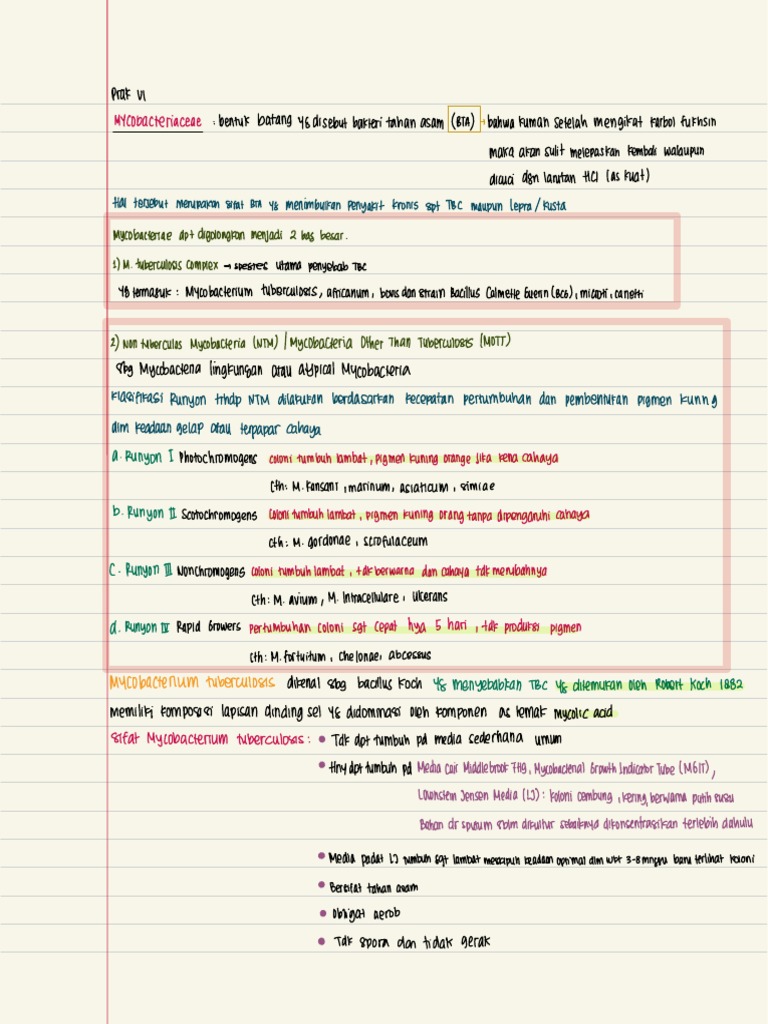 Prak VI
Mycobacteriaceae : bentuk batang yg disebut bakteri tahan asam (BTA) → bahwa kuman setelah mengikat karbol fukhsin
maka akan sulit melepaskan kembali walaupun
dicuci dgn larutan HCl (as kuat)
Hal tersebut merupakan sifat BTA yg menimbulkan penyakit kronis spt TBC maupun lepra / kusta
Mycobacteriae dpt digolongkan menjadi 2 bag besar.
1) M. tuberculosis complex → spesies utama penyebab TBC
yg termasuk : Mycobacterium tuberculosis, africanum, bovis dan strain Bacillus Calmette Guerin (BCG), microti, canetti
2) Non tuberculas Mycobacteria (NTM) / Mycobacteria Other Than Tuberculosis (MOTT)
sbg Mycobacteria lingkungan atau atypical Mycobacteria
klasifikasi Runyon trhdp NTM dilakukan berdasarkan kecepatan pertumbuhan dan pembentukan pigmen kuning
dlm keadaan gelap atau terpapar cahaya
a. Runyon I Photochromogens coloni tumbuh lambat, pigmen kuning orange jika kena cahaya
Cth: M. Kansani, marinum, asiaticum, simiae
b. Runyon II Scotochromogens coloni tumbuh lambat, pigmen kuning orang tanpa dipengaruhi cahaya
cth: M. gordonae, scrofulaceum
c. Runyon III Nonchromogens coloni tumbuh lambat, tdk berwarna dan cahaya tdk merubahnya
Cth: M. avium, M. Intracellulare, ulcerans
d. Runyon IV Rapid Growers pertumbuhan coloni sgt cepat hya 5 hari, tdk produksi pigmen
cth: M. fortuitum, chelonae, abcessus
Mycobacterium tuberculosis dikenal sbg bacillus Koch yg menyebabkan TBC yg ditemukan oleh Robert Koch 1882
memiliki komposisi lapisan dinding sel yg didominasi oleh komponen as lemak mycolic acid
sifat Mycobacterium tuberculosis : • Tdk dpt tumbuh pd media sederhana umum
• Hny dpt tumbuh pd Media cair Middlebrook 7H9, Mycobacterial Growth Indicator Tube (MGIT),
Lownstein Jensen Media (LJ) : koloni cembung, kering, berwarna putih susu
Bahan dr sputum sblm dikultur sebaiknya dikonsentrasikan terlebih dahulu
• Media padat LJ tumbuh sgt lambat meskipun keadaan optimal dlm wkt 3-8 mnggu baru terlihat koloni
• Bersifat tahan asam
• Obligat aerob
• Tdk spora dan tidak gerak